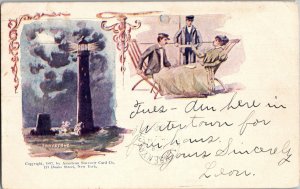 Tues - Am here in
Watertown for
four hours.
Yours Sincerely
Leon.
Copyright, 1907, by American Souvenir Card Co.
New York.